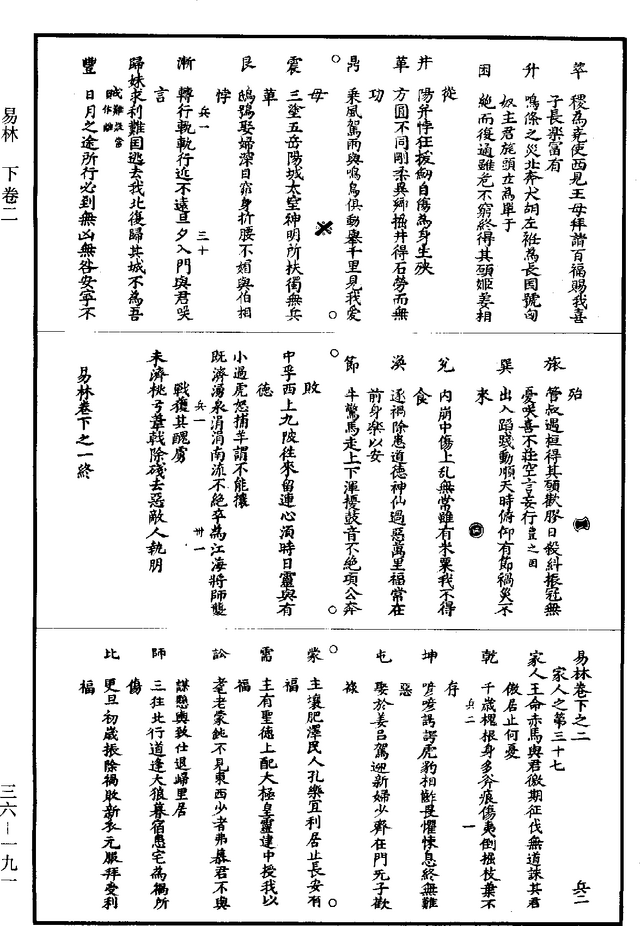 易林 下卷二
萃 稷為堯使西見王母拜請百福賜我喜
子長樂富有
升 鳴條之災北奔犬胡左袵為長國號匈
奴主君旄頭立為單于
困 絕而復通雖危不窮終得其願姬姜相
從
井 陽弁悖狂拔劒自傷為身生殃
革 方圓不同剛柔異鄉掘井得石勞而無
功
鼎 乘風駕雨與鳴鳥俱動舉千里見我愛
母
震 三塗五岳陽城太室神明所扶獨無兵
革
艮 鴟鴞娶婦深目窈身折腰不媚與伯相
悖
兵一 三十
漸 轉行軌軌行近不遠旦夕入門與君笑
言
歸妹求利難國逃去我北復歸其城不為吾
豐 日月之途所行必到無凶無咎安寧不
殆
旅 管叔遇桓得其願歡膠日殺糾振冠無
憂笑喜不莊空言妄行
巽 出入蹈踐動順天時俯仰有節禍災不
來
兌 內崩中傷上亂無常雖有米粟我不得
食
渙 逐禍除患道德神仙過惡萬里福常在
前身樂以安
節 牛驚馬走上下渾擾鼓音不絕項公奔
敗
中孚西上九陂往來留連心湏時日靈與有
德
小過虎怒捕羊謂不能攘
既濟湧泉涓涓南流不絕卒為江海將師襲
戰獲其醜虜
兵一 卅一
未濟桃弓葦戟除殘去惡敵人執明
易林卷下之一終
易林卷下之二 兵二
家人之第三十七
家人王命赤馬與君徵期征伐無道誅其君
傲居止何憂
乾 千歲槐根身多斧痕傷夷倒掘枝葉不
存
兵二 一
坤 喑喑諤諤虎豹相齚畏懼悚息終無難
惡
屯 娶於姜呂駕迎新婦少齊在門夫子歡
祿
蒙 主壤肥澤民人孔樂宜利居止長安有
福
需 主有聖德上配大極皇靈建中授我以
福
訟 耄老蒙鈍不見東西少者弗慕君不與
謀懸輿致仕退歸里居
師 三往北行道逢大狼暮宿患宅為禍所
傷
比 更旦初歲振除禍敗新衣元服拜受利
福
三六－一九一